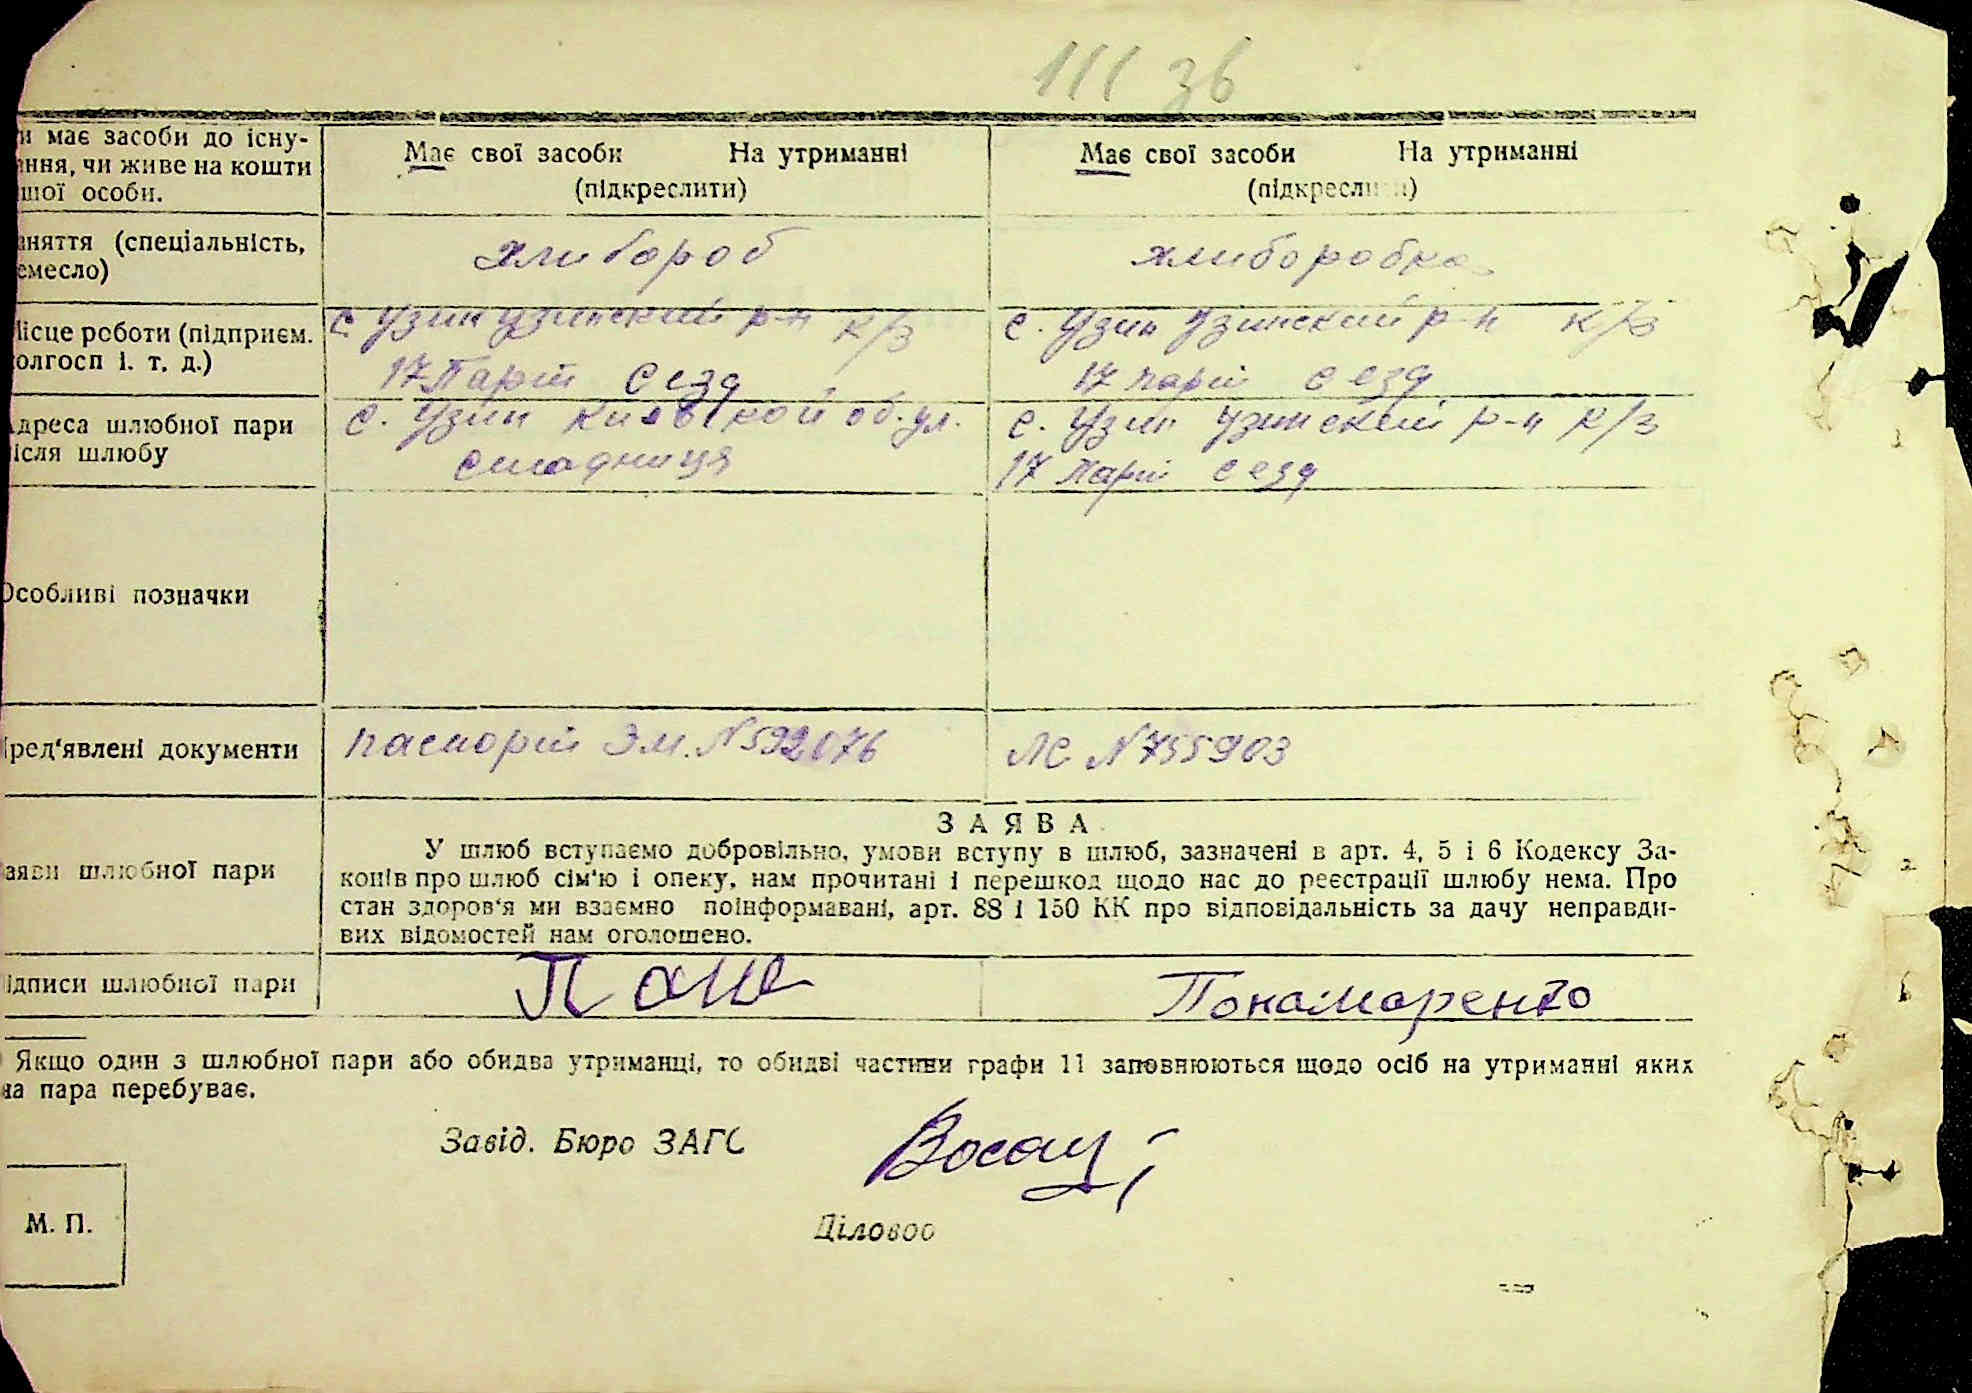 111 зв
и має засоби до існу-
ання, чи живе на кошти
шої особи.
Має свої засоби На утриманні
(підкреслити)
Має свої засоби На утриманні
(підкресли)
аняття (спеціальність,
емесло)
хлибороб
хлиборобка
Місце роботи (підприєм.
олгосп і. т. д.)
с. Узин Узинский р-н к/з
17 Парт сезд
с. Узин Узинский р-н к/з
17 парт сезд
Адреса шлюбної пари
ісля шлюбу
с. Узин Киевской об. ул.
с. Узин Узинский р-н к/з
17 парт сезд
Особливі позначки
пред'явлені документи
паспорт ЭМ. N 592076
ЛС N 755903
аяви шлюбної пари
ЗАЯВА
У шлюб вступаємо добровільно, умови вступу в шлюб, зазначені в арт. 4, 5 і 6 Кодексу За-
конів про шлюб сім'ю і опеку, нам прочитані і перешкод щодо нас до реєстрації шлюбу нема. Про
стан здоров'я ми взаємно поінформавані, арт. 88 і 150 КК про відповідальність за дачу неправди-
вих відомостей нам оголошено.
ідписи шлюбної пари
Пономаренко
Якщо один з шлюбної пари або обидва утриманці, то обидві частини графи 11 заповнюються щодо осіб на утриманні яких
на пара перебуває.
Завід. Бюро ЗАГС
Діловод
М. П.